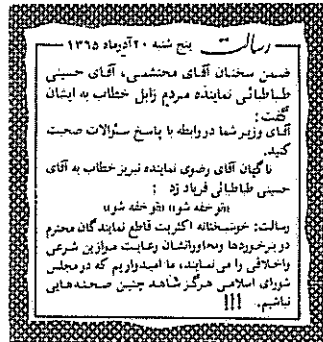 رسالت پنج شنبه ۲۰ آذرماه ۱۳۶۵
ضمن سخنان آقای محتشمی، آقای حسینی
طباطبائی نماینده مردم زابل خطاب به ایشان
گفت:
آقای وزیر شما در وابطه با پاسخ سئوالات صحبت
کنید.
ناگهان آقای رضوی نماینده تبریز خطاب به آقای
حسینی طباطبائی فریاد زد :
«تو خفه شو» «تو خفه شو»
رسالت: خوشبختانه اکثریت قاطع نمایندگان محترم
در برخوردها ومحاوراتشان رعایت موازین شرعی
واخلاقی را می‌نمایند، ما امیدواریم که در مجلس
شورای اسلامی هرگز شاهد چنین صحنه‌هایی
نباشیم. !!!